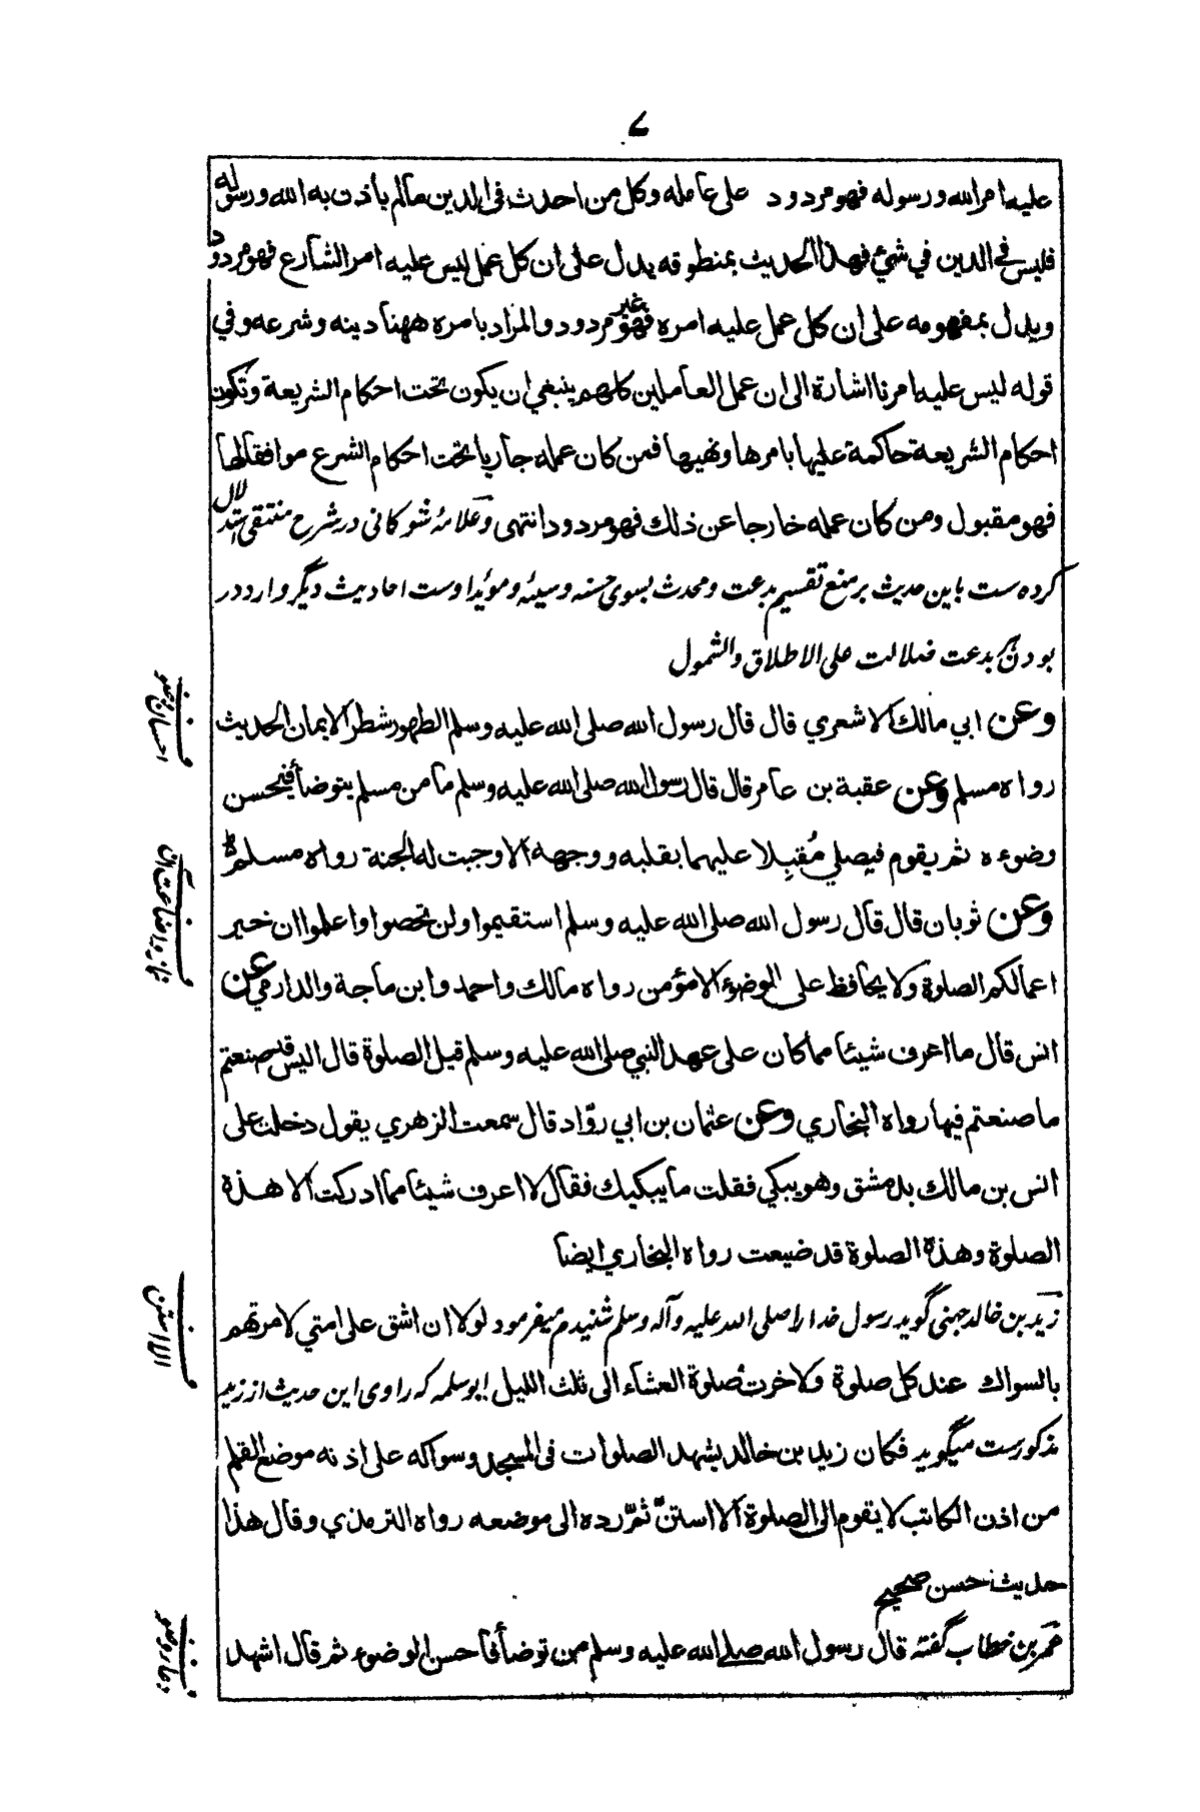 ۷
عليه امر الله ورسوله فهو مردود على عامله وكل من احدث فى الدين مالم يأذن به الله ورسوله
فليس فے الدين في شئ فهذا الحديث بمنطوقه يدل على ان كل عمل ليس عليه امر الشارع فهو مردود
ويدل بمفهومه على ان كل عمل عليه امره فهو غير مردود والمراد بامره ههنا دينه وشرعه وفي
قوله ليس عليه امرنا اشارة الى ان عمل العاملين كلهم ينبغي ان يكون تحت احكام الشريعة وتكون
احكام الشريعة حاكمة عليها بامرها ونهيها فمن كان عمله جاريا تحت احكام الشرع موافقا لها
فهو مقبول ومن كان عمله خارجا عن ذلك فهو مردود انتهى وعلامۂ شوكانى در شرح منتقى استدلال
كرده ست باين حديث بر منع تقسيم بدعت ومحدث بسوى حسنه وسيئه ومويد اوست احاديث ديگر وارد در
بودن هر بدعت ضلالت على الاطلاق والشمول
وعن ابي مالك الاشعري قال قال رسول الله صلى الله عليه وسلم الطهور شطر الايمان الحديث
رواه مسلم وعن عقبة بن عامر قال قال رسول الله صلى الله عليه وسلم ما من مسلم يتوضأ فيحسن
وضوءه ثم يقوم فيصلي مُقبِلا عليهما بقلبه ووجهه الا وجبت له الجنة رواه مسلم
وعن ثوبان قال قال رسول الله صلى الله عليه وسلم استقيموا ولن تحصوا واعلموا ان خير
اعمالكم الصلوة ولا يحافظ على الوضوء الا مؤمن رواه مالك واحمد وابن ماجة والدارمي عن
انس قال ما اعرف شيئا مما كان على عهد النبي صلى الله عليه وسلم قيل الصلوة قال اليس قد صنعتم
ما صنعتم فيها رواه البخاري وعن عثمان بن ابي روّاد قال سمعت الزهري يقول دخلت على
انس بن مالك بدمشق وهو يبكي فقلت ما يبكيك فقال لا اعرف شيئا مما ادركت الا هذه
الصلوة وهذه الصلوة قد ضيعت رواه البخاري ايضا
زيد بن خالد جهنى گويد رسول خدا را صلى الله عليه وآله وسلم شنيدم ميفرمود لولا ان اشق على امتي لامرتهم
بالسواك عند كل صلوة ولاخرت صلوة العشاء الى ثلث الليل ابو سلمه كه راوى اين حديث از زيد
مذكورست ميگويد فكان زيد بن خالد يشهد الصلوات فى المسجد وسواكه على اذنه موضع القلم
من اذن الكاتب لا يقوم الى الصلوة الا استنّ ثمّ رده الى موضعه رواه الترمذي وقال هذا
حديث حسن صحيح
عمر بن خطاب گفته قال رسول الله صلے الله عليه وسلم من توضأ فاحسن الوضوء ثم قال اشهد